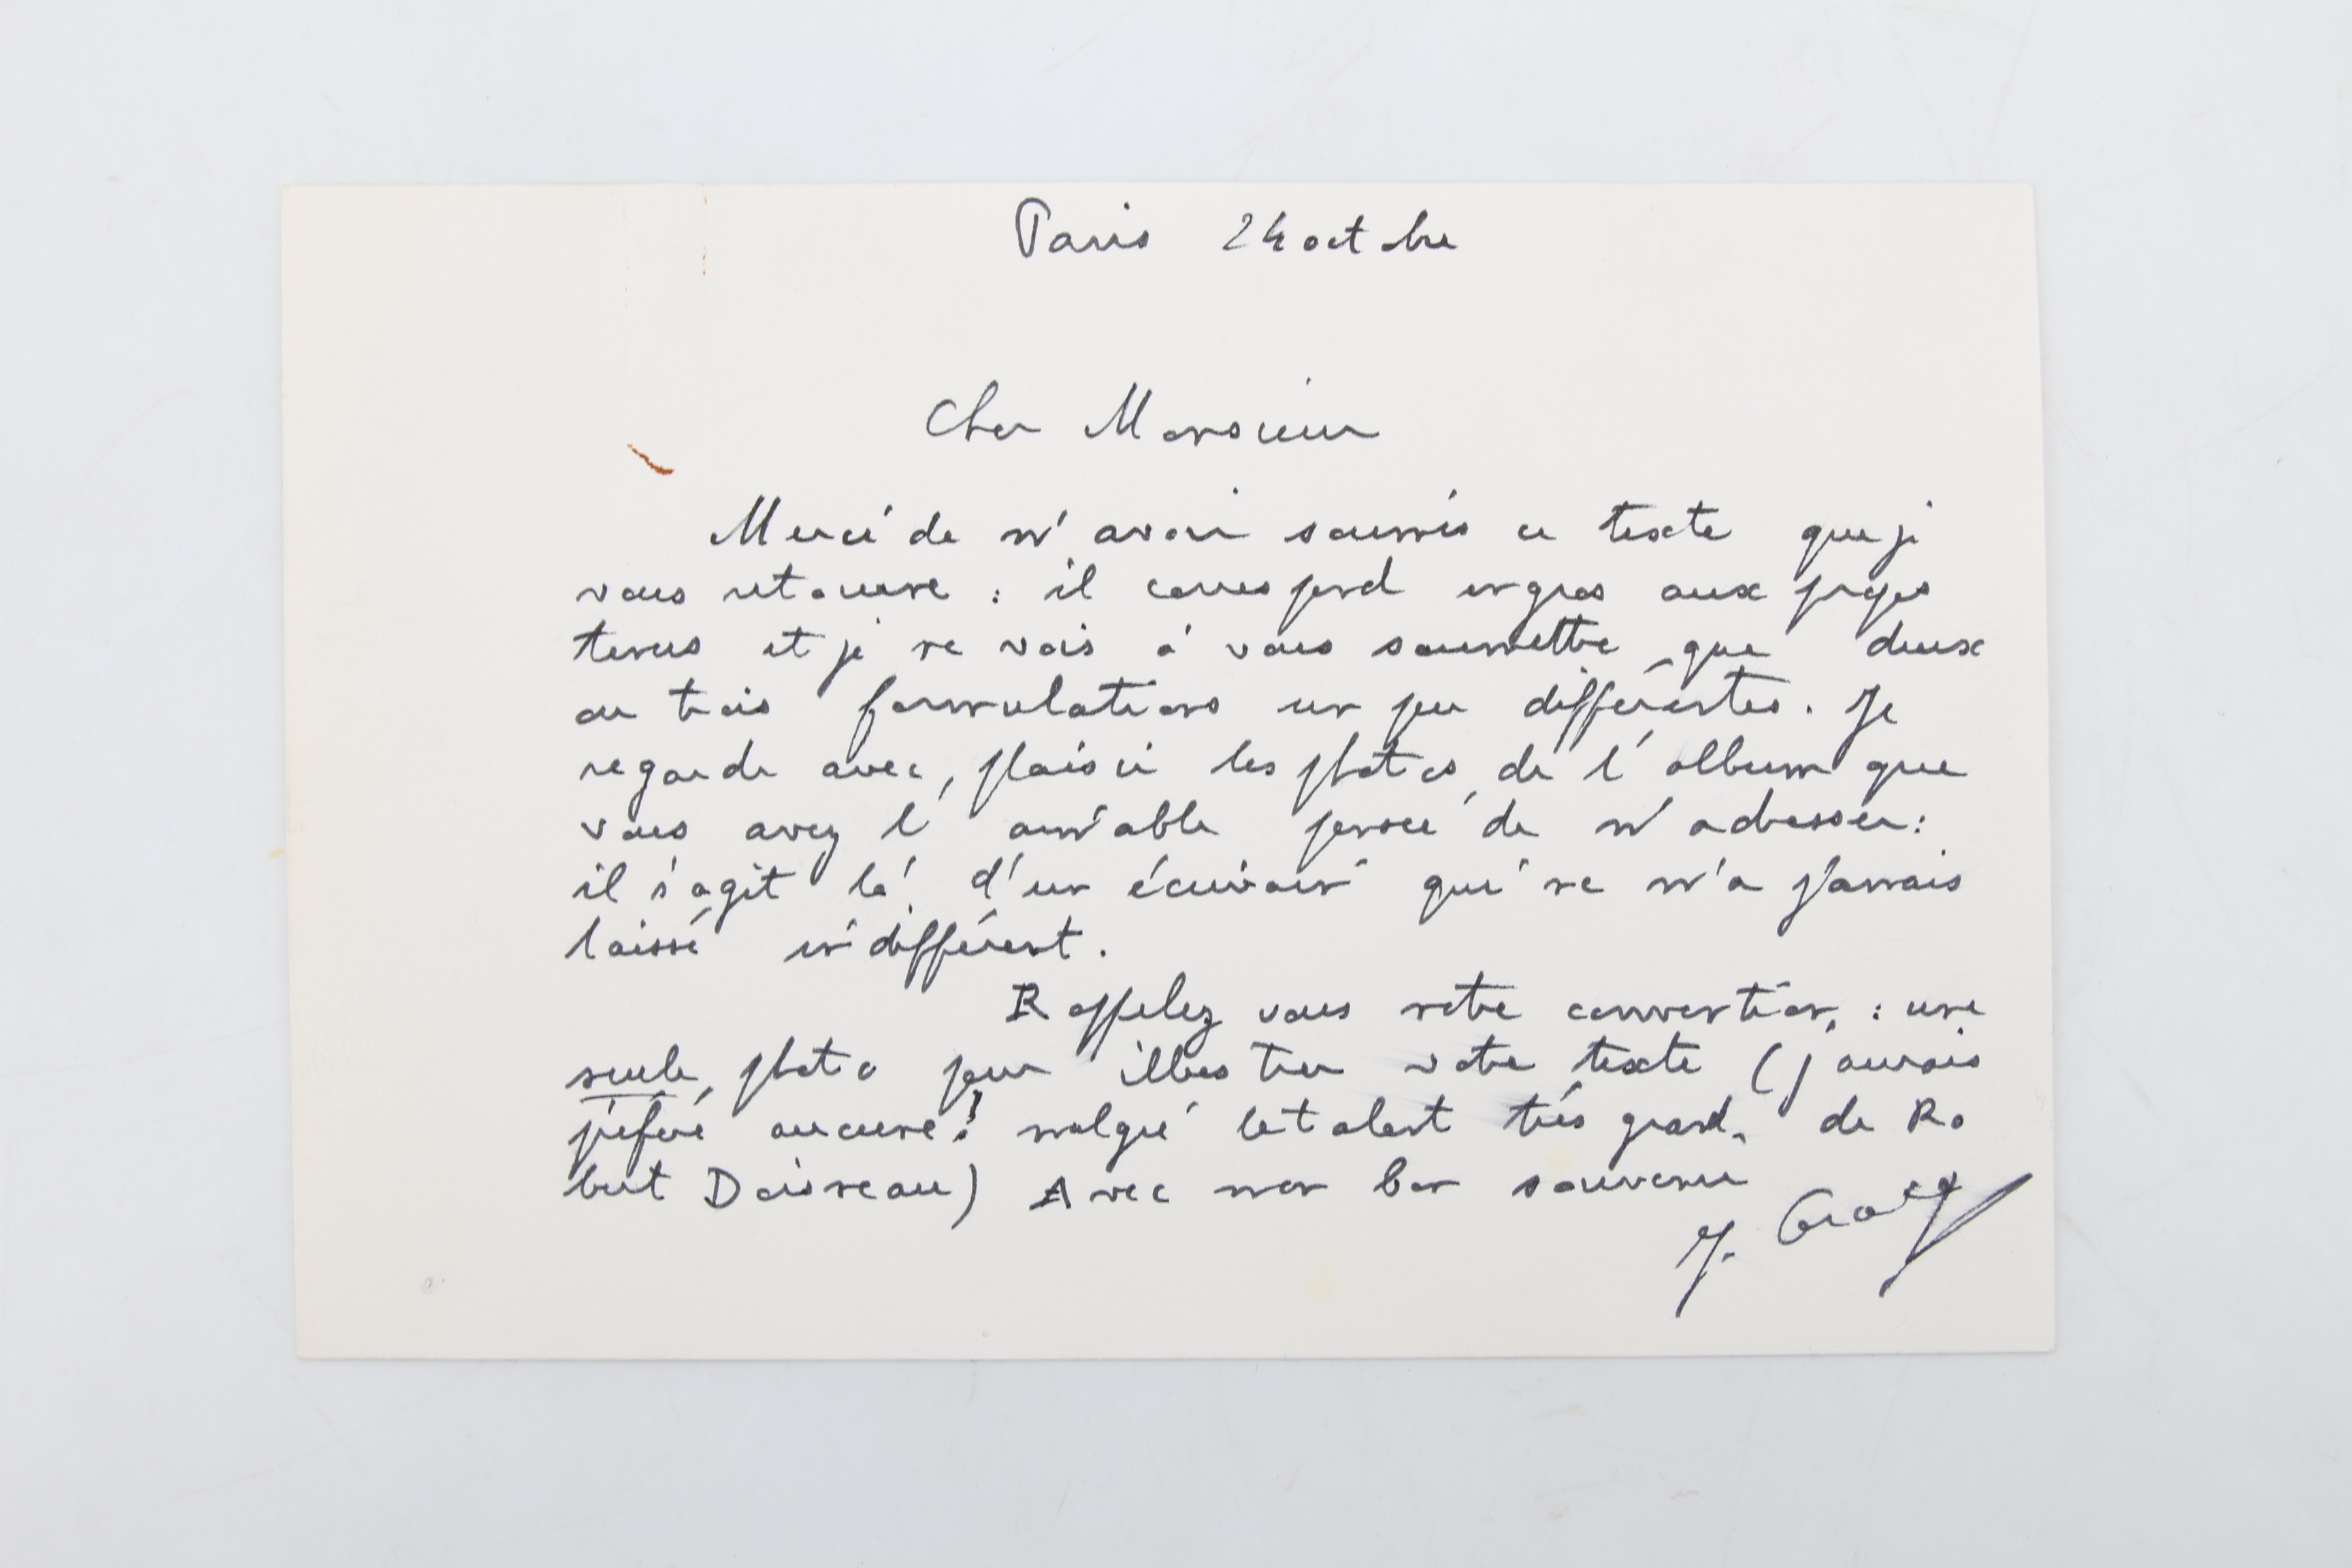 Paris 24 octobre
Cher Monsieur
Merci de m'avoir soumis ce texte que je
vous retourne : il correspond en gros aux propos
tenus et je ne vois à vous soumettre que deux
ou trois formulations un peu différentes. Je
regarde avec plaisir les photos de l'album que
vous avez l'aimable pensée de m'adresser :
il s'agit là d'un écrivain qui ne m'a jamais
laissé indifférent.
Rappelez vous notre convention : une
seule photo pour illustrer votre texte (j'aurais
préféré aucune ! malgré le talent très grand de Ro
bert Doisneau) Avec mon bon souvenir
J. Gracq